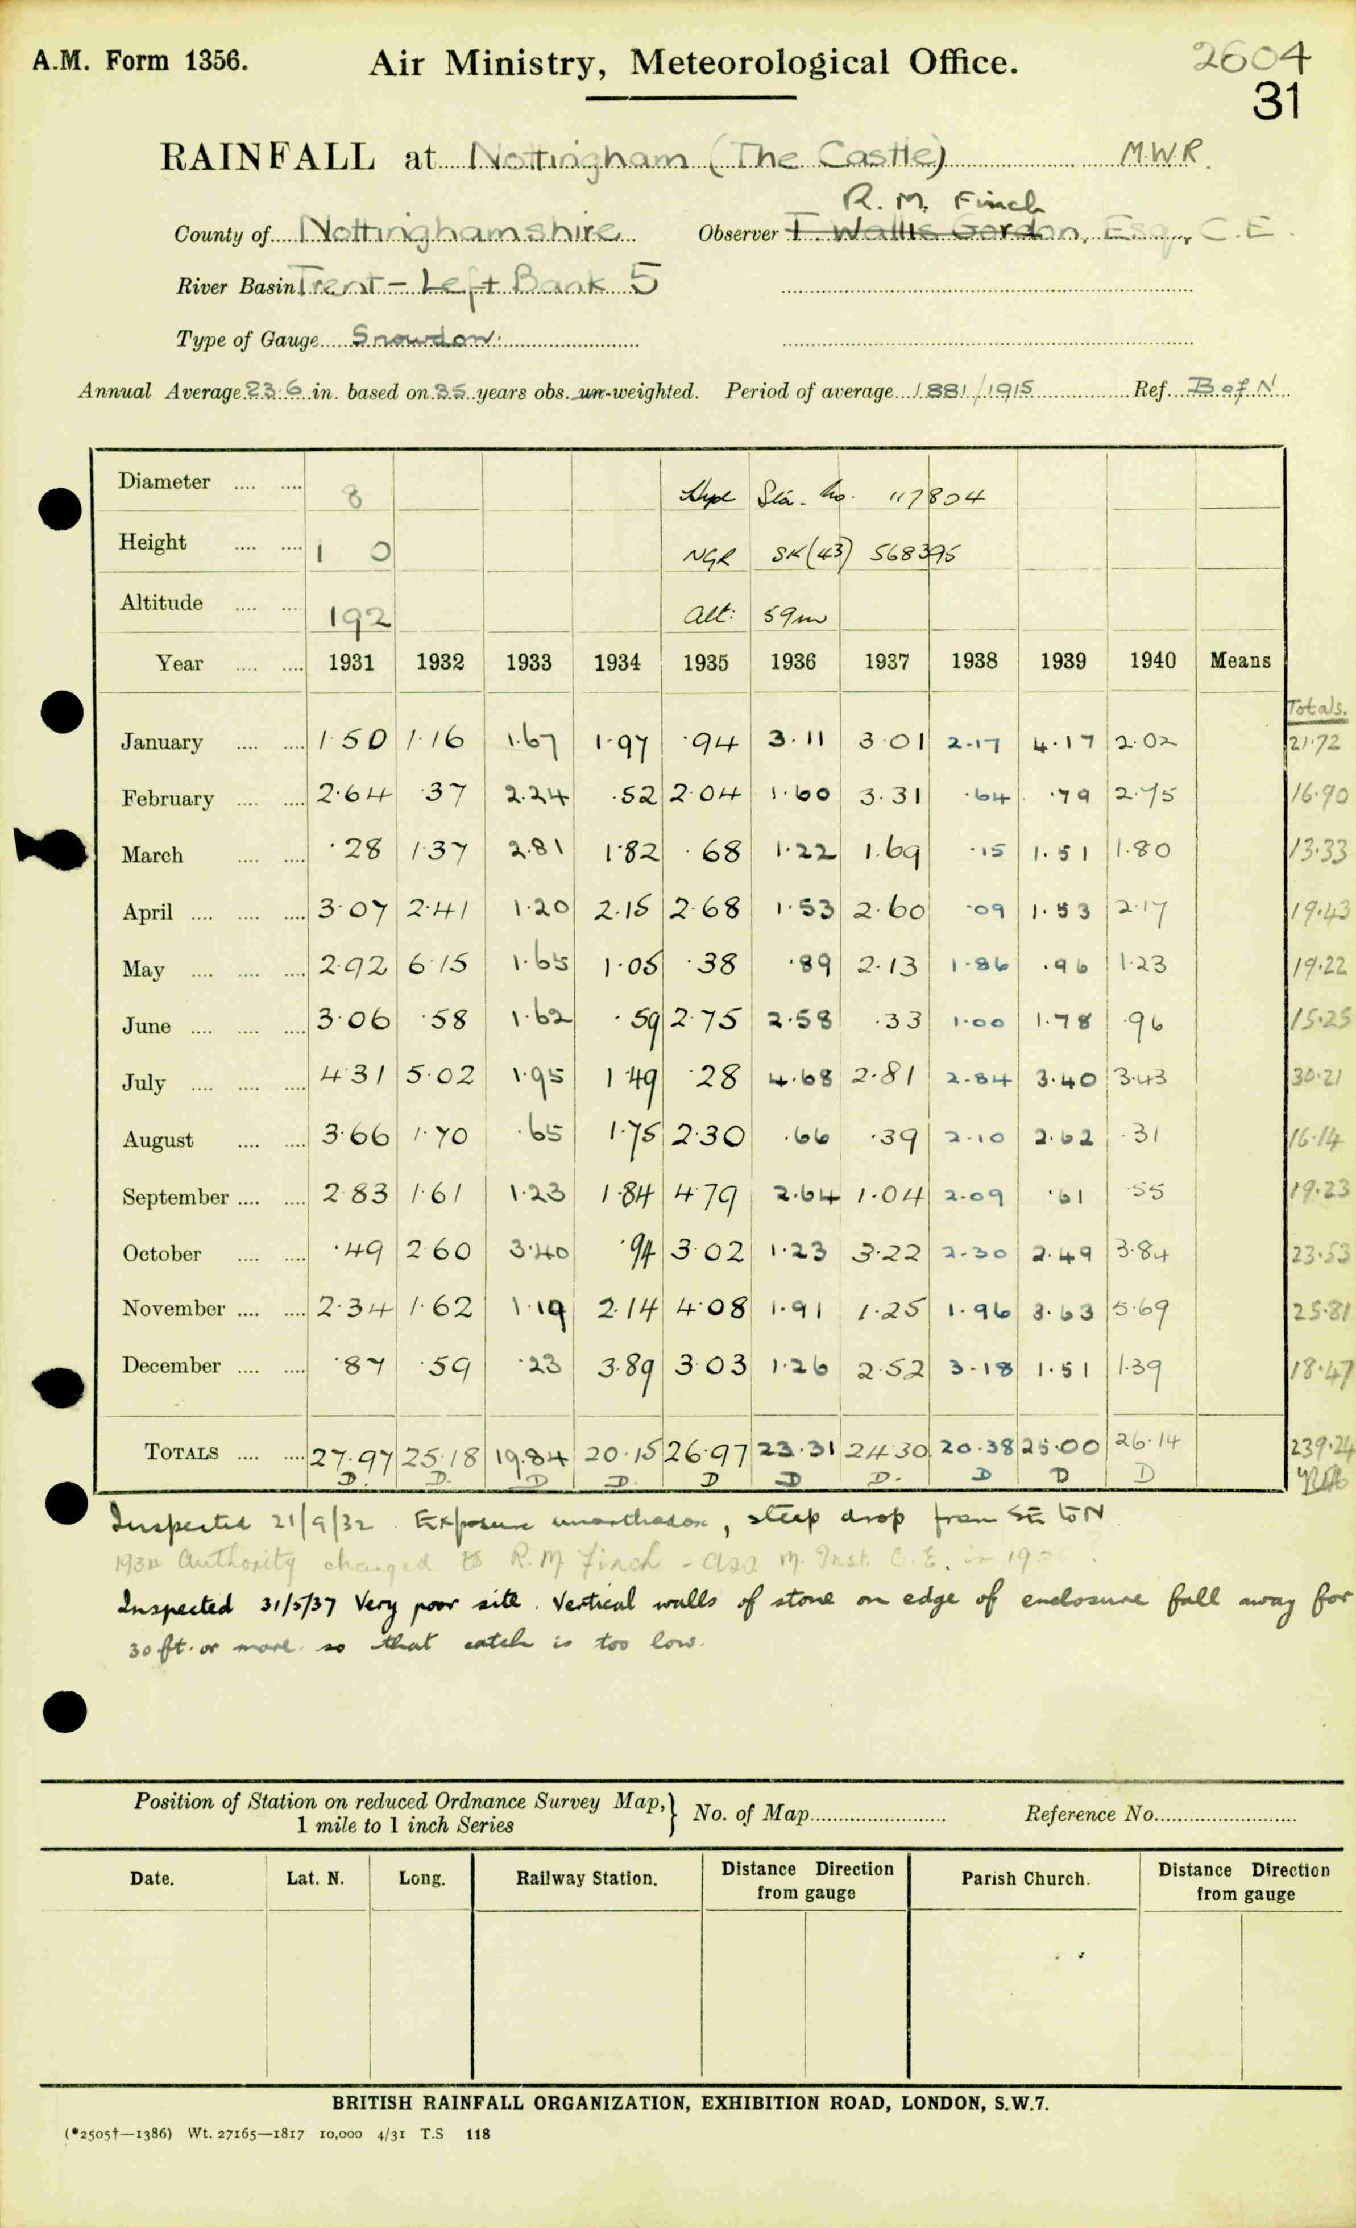 A.M. Form 1356. Air Ministry, Meteorological Office. 2604
31
RAINFALL at Nottingham (The Castle) M.W.R.
R. M. Finch
County of Nottinghamshire Observer T. Wallis Gordon, Esq., C.E.
River Basin Trent - Left Bank 5
Type of Gauge Snowdon
Annual Average 23.6 in. based on 35 years obs. un-weighted. Period of average 1881/1915 Ref. B of N
Diameter .... .... 8 Hyd Sta. No. 117804
Height .... .... 1 0 NGR SK(43) 568395
Altitude .... .... 192 Alt: 59m
Year .... .... 1931 1932 1933 1934 1935 1936 1937 1938 1939 1940 Means
Totals.
January .... .... 1.50 1.16 1.67 1.97 .94 3.11 3.01 2.17 4.17 2.02 21.72
February .... .... 2.64 .37 2.24 .52 2.04 1.60 3.31 .64 .79 2.75 16.90
March .... .... .28 1.37 2.81 1.82 .68 1.22 1.69 .15 1.51 1.80 13.33
April .... .... .... 3.07 2.41 1.20 2.15 2.68 1.53 2.60 .09 1.53 2.17 19.43
May .... .... .... 2.92 6.15 1.65 1.05 .38 .89 2.13 1.86 .96 1.23 19.22
June .... .... .... 3.06 .58 1.62 .59 2.75 2.58 .33 1.00 1.78 .96 15.25
July .... .... .... 4.31 5.02 1.95 1.49 .28 4.68 2.81 2.84 3.40 3.43 30.21
August .... .... 3.66 1.70 .65 1.75 2.30 .66 .39 2.10 2.62 .31 16.14
September .... .... 2.83 1.61 1.23 1.84 4.79 2.64 1.04 2.09 .61 .55 19.23
October .... .... .49 2.60 3.40 .94 3.02 1.23 3.22 2.30 2.49 3.84 23.53
November .... .... 2.34 1.62 1.19 2.14 4.08 1.91 1.25 1.96 3.63 5.69 25.81
December .... .... .87 .59 .23 3.89 3.03 1.26 2.52 3.18 1.51 1.39 18.47
TOTALS .... .... 27.97 25.18 19.84 20.15 26.97 23.31 24.30 20.38 25.00 26.14 239.24
D. D. D D. D D D. D D D
Inspected 21/9/32. Exposure unorthodox, steep drop from SE to N
1934 Authority changed to R. M Finch - Ass. M. Inst. C.E. in 19
Inspected 31/5/37 Very poor site. Vertical walls of stone on edge of enclosure fall away for
30 ft. or more so that catch is too low.
Position of Station on reduced Ordnance Survey Map, } No. of Map Reference No.
1 mile to 1 inch Series
Date. Lat. N. Long. Railway Station. Distance Direction from gauge Parish Church. Distance Direction from gauge
BRITISH RAINFALL ORGANIZATION, EXHIBITION ROAD, LONDON, S.W.7.
(*2505†—1386) Wt. 27165—1817 10,000 4/31 T.S 118